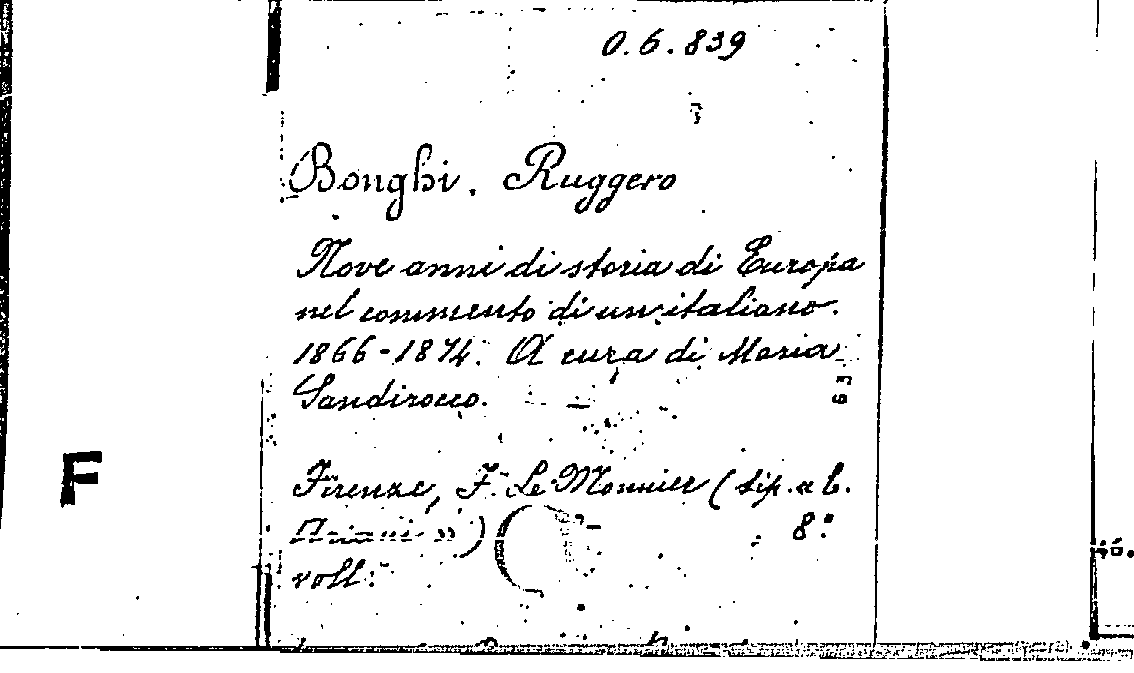 O.6.839
Bonghi, Ruggero
Nove anni di storia di Europa
nel commento di un italiano.
1866-1874. A cura di Maria
Sandirocco.
63
Firenze, F. Le Monnier (tip. « L.
Ariani ») 8.°
voll.
F
46.